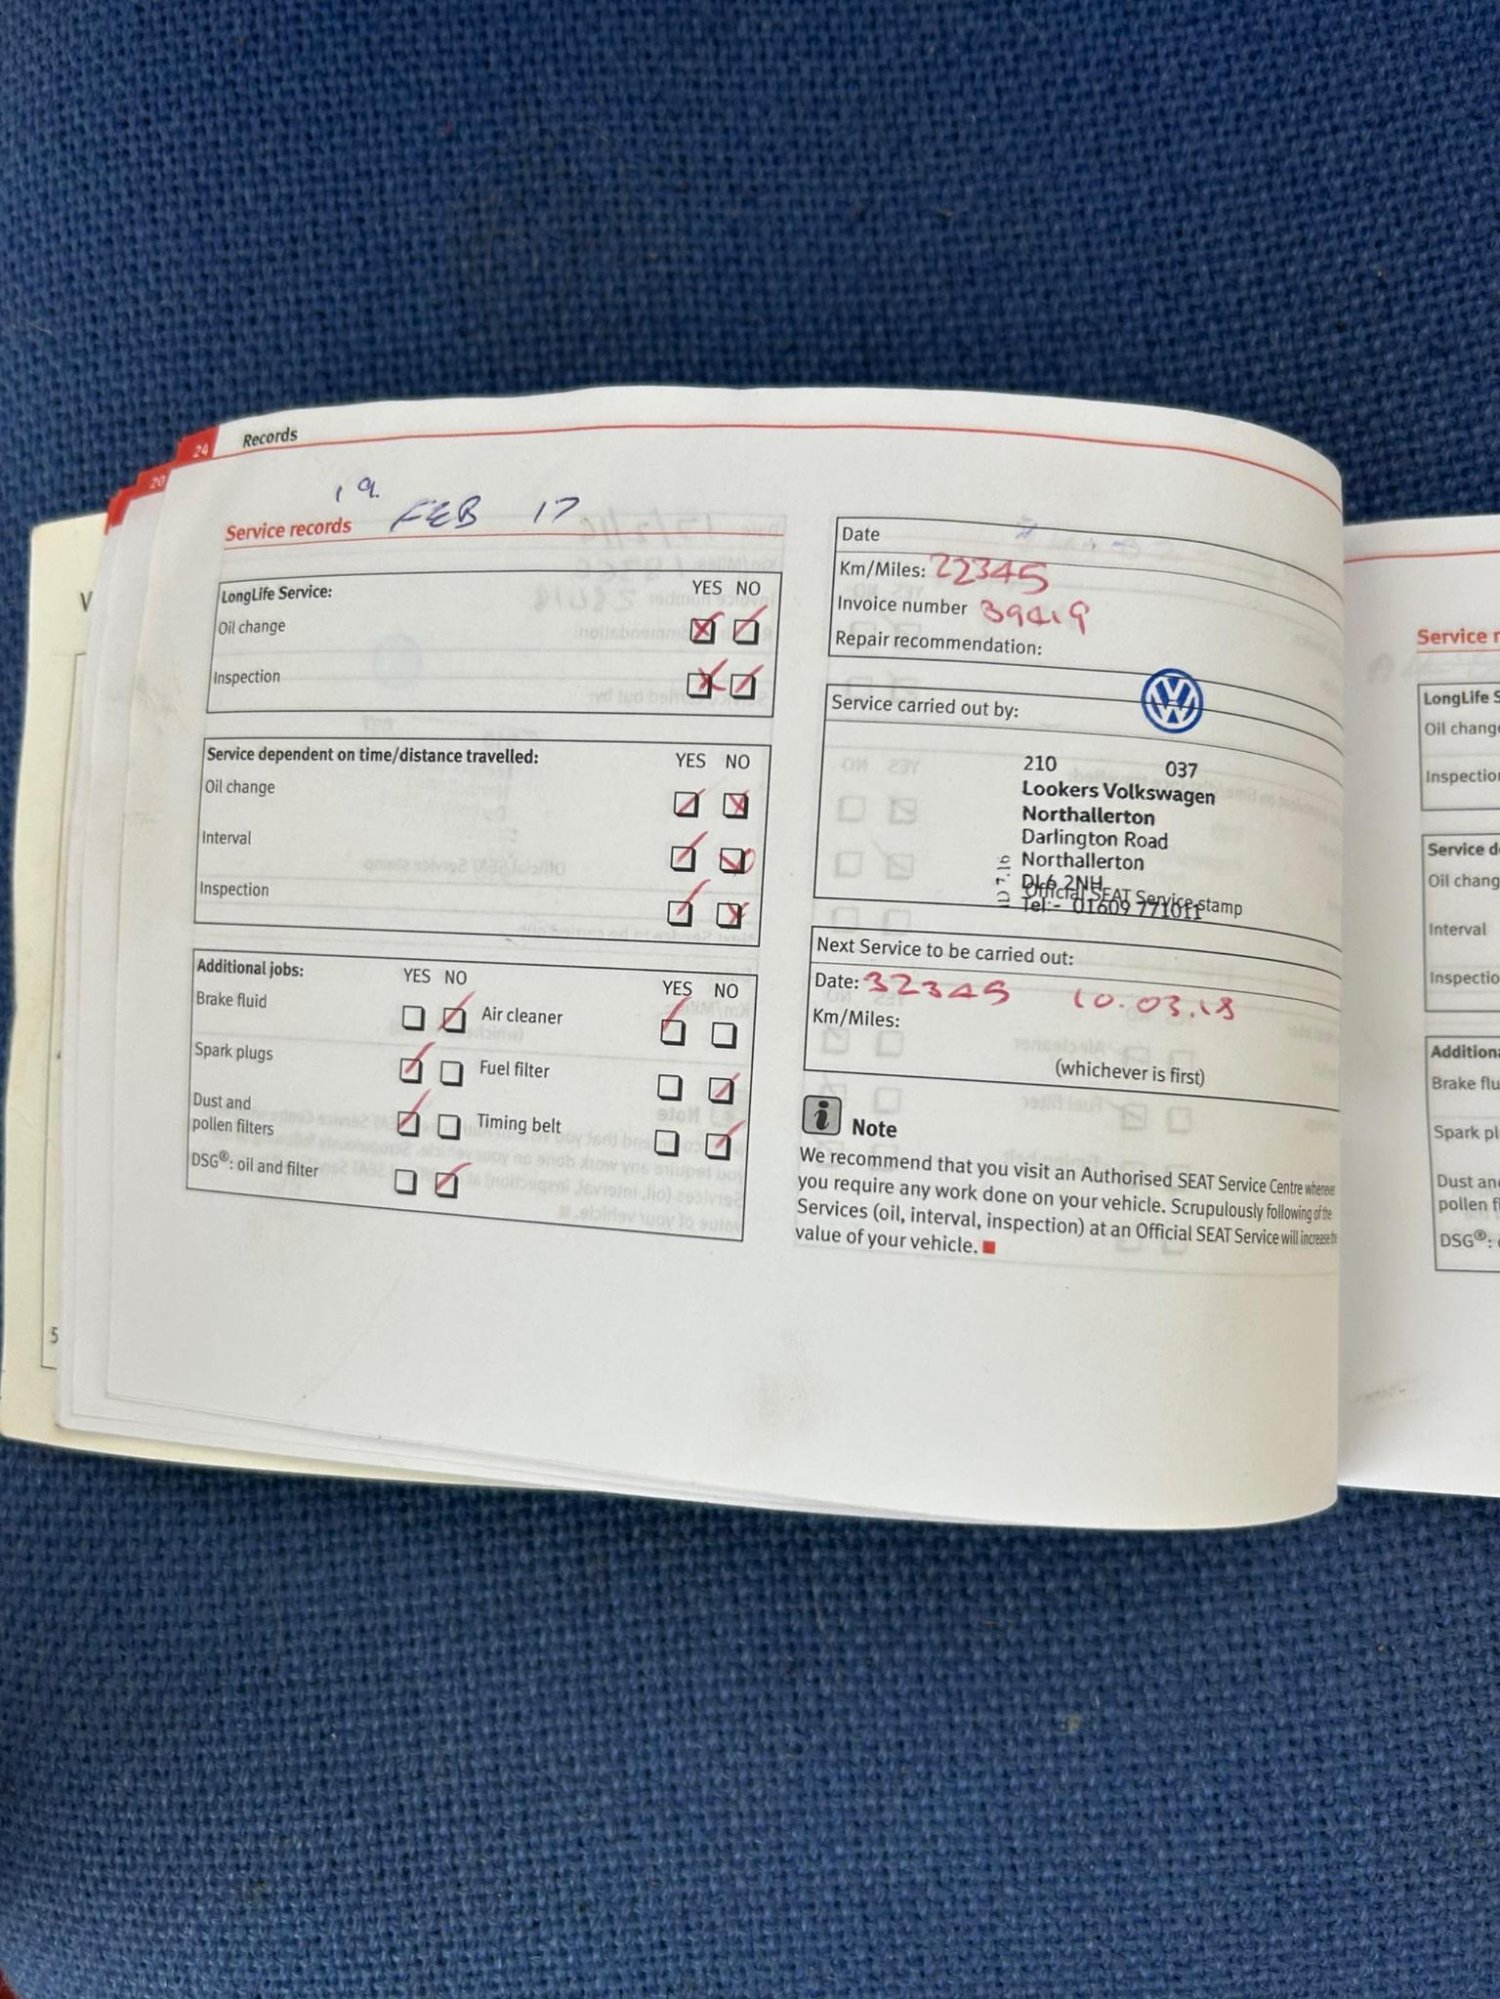 24 Records
20
19 FEB 17
Service records
LongLife Service: YES NO
Oil change
Inspection
Service dependent on time/distance travelled: YES NO
Oil change
Interval
Inspection
Additional jobs: YES NO YES NO
Brake fluid Air cleaner
Spark plugs Fuel filter
Dust and
pollen filters Timing belt
DSG®: oil and filter
Date
Km/Miles: 22345
Invoice number 39419
Repair recommendation:
Service carried out by:
210 037
Lookers Volkswagen
Northallerton
Darlington Road
Northallerton
DL6 2NH
Official SEAT Service stamp
Tel:- 01609 771011
Next Service to be carried out:
Date: 32345 10.03.18
Km/Miles:
(whichever is first)
Note
We recommend that you visit an Authorised SEAT Service Centre whenever
you require any work done on your vehicle. Scrupulously following of the
Services (oil, interval, inspection) at an Official SEAT Service will increase the
value of your vehicle.
5
Service r
LongLife S
Oil change
Inspectio
Service d
Oil chang
Interval
Inspectio
Additiona
Brake flu
Spark pl
Dust an
pollen f
DSG®: